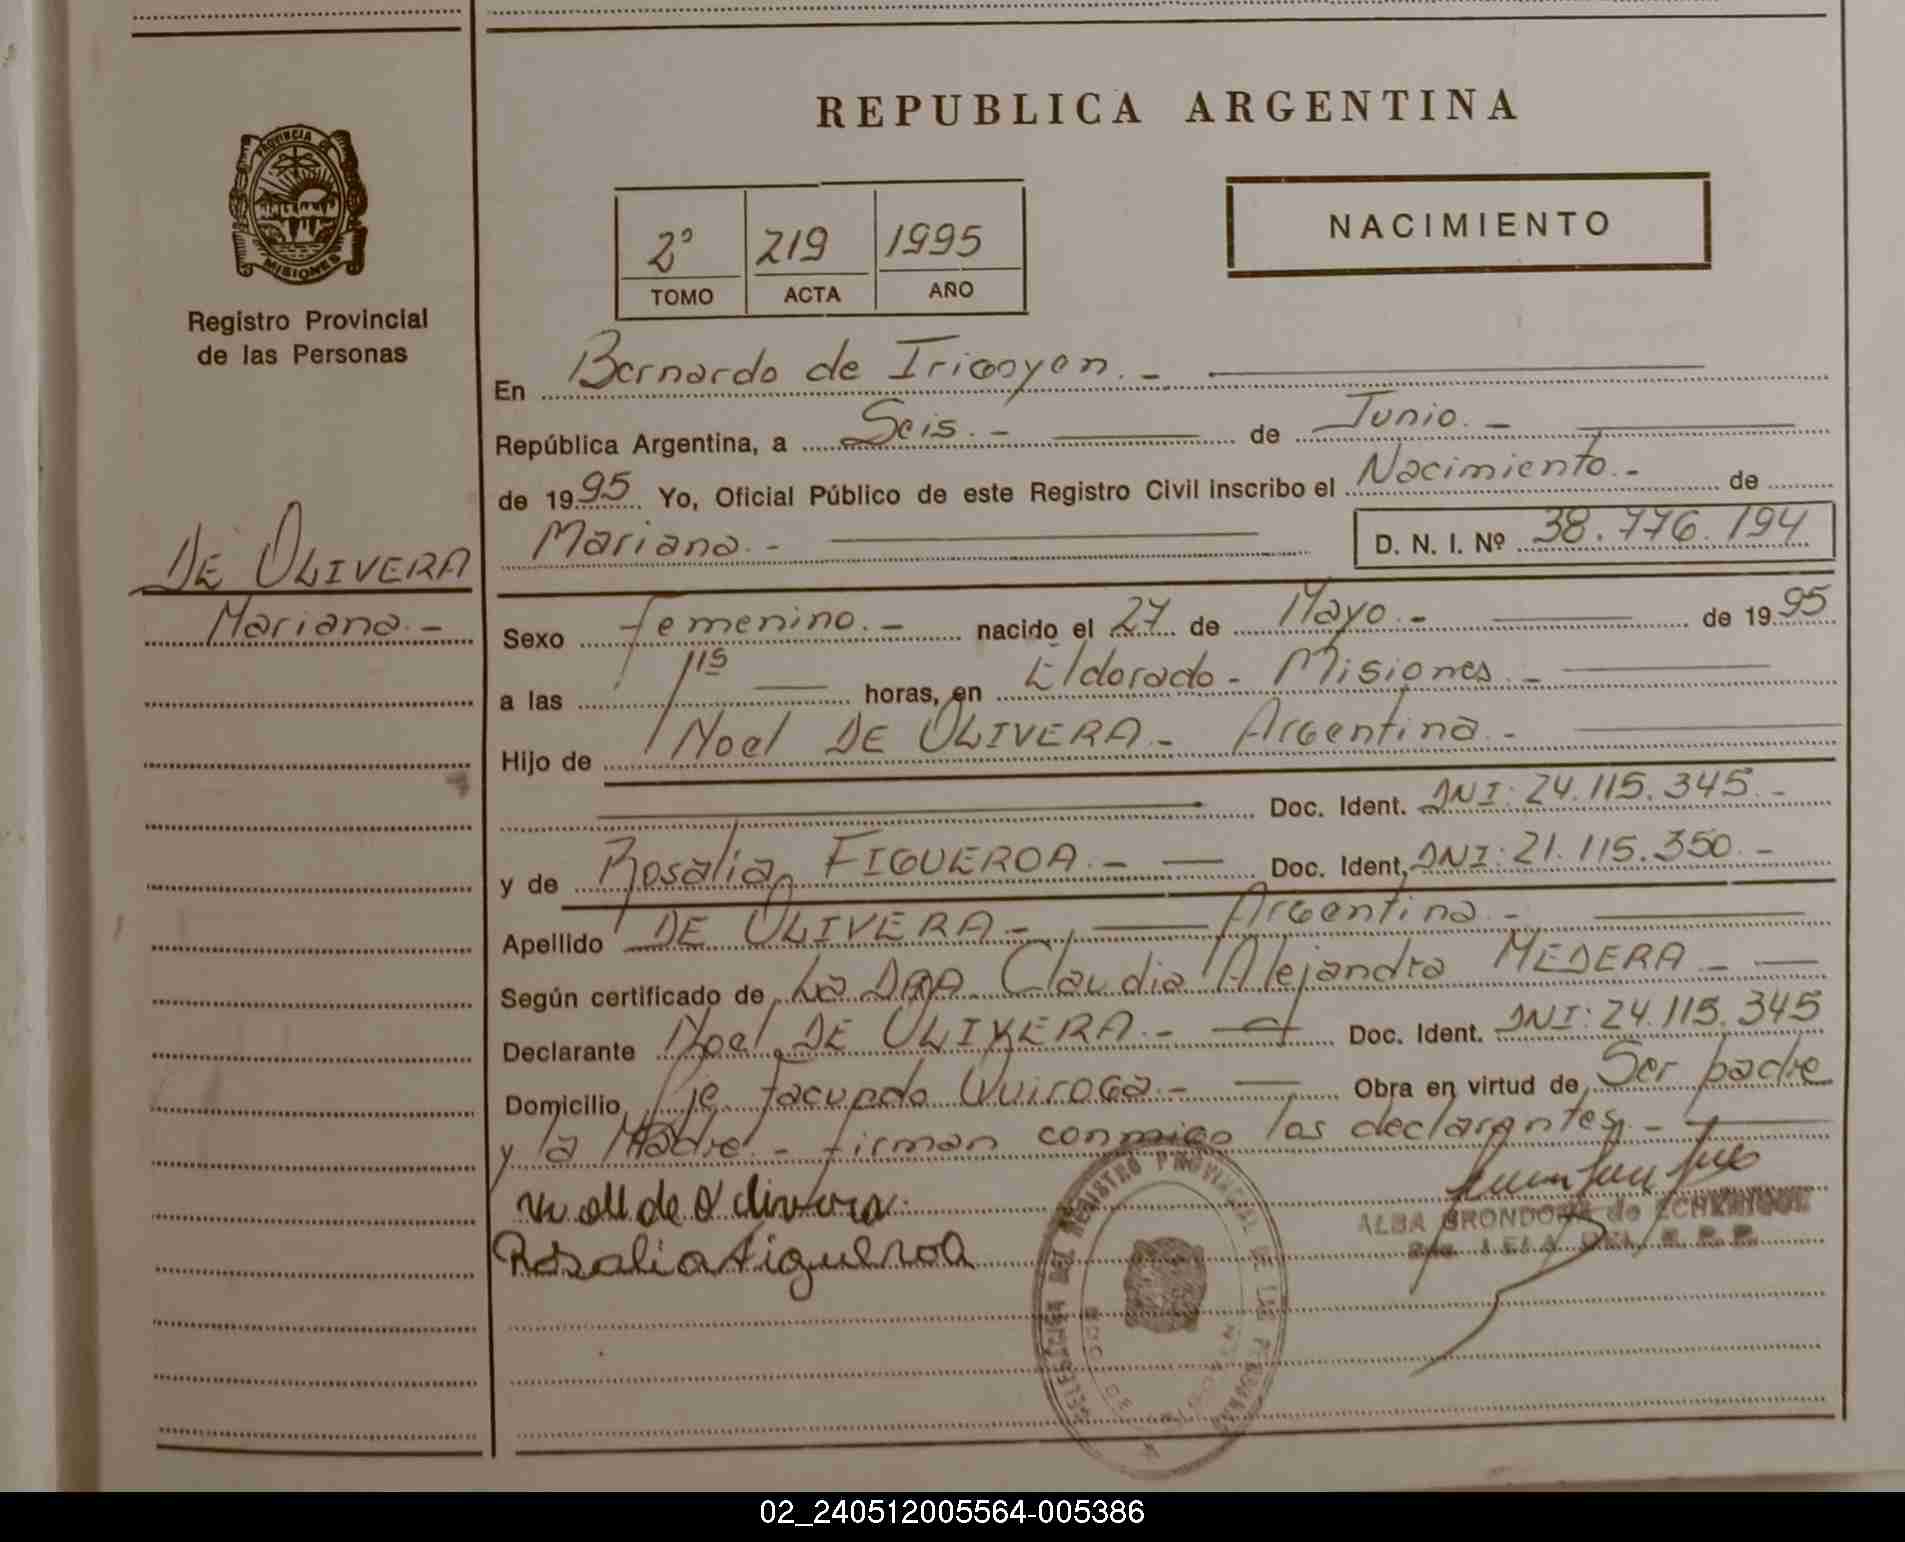 REPUBLICA ARGENTINA
PROVINCIA DE
MISIONES
Registro Provincial
de las Personas
DE OLIVERA
Mariana.-
2º 219 1995
TOMO ACTA AÑO
NACIMIENTO
En Bernardo de Irigoyen.-
República Argentina, a Seis.- de Junio.-
de 1995 Yo, Oficial Público de este Registro Civil inscribo el Nacimiento.- de
Mariana.- D. N. I. Nº 38.776.194
Sexo femenino.- nacido el 27 de Mayo.- de 1995
a las 1¹⁵ horas, en Eldorado - Misiones.-
Hijo de Noel DE OLIVERA.- Argentina.-
Doc. Ident. DNI: 24.115.345.-
y de Rosalia FIGUEROA.- Doc. Ident. DNI: 21.115.350.-
Apellido DE OLIVERA.- Argentina.-
Según certificado de La DRA Claudia Alejandra MEDERA.-
Declarante Noel DE OLIVERA.- Doc. Ident. DNI: 24.115.345
Domicilio Pje Facundo Quiroga.- Obra en virtud de Ser padre
y la Madre.- firman conmigo los declarantes.-
de Olivera
Rosalia Figueroa
ALBA BRONDONE de ECHENIQUE
DEL REGISTRO PROVINCIAL DE LAS PERSONAS
02_240512005564-005386